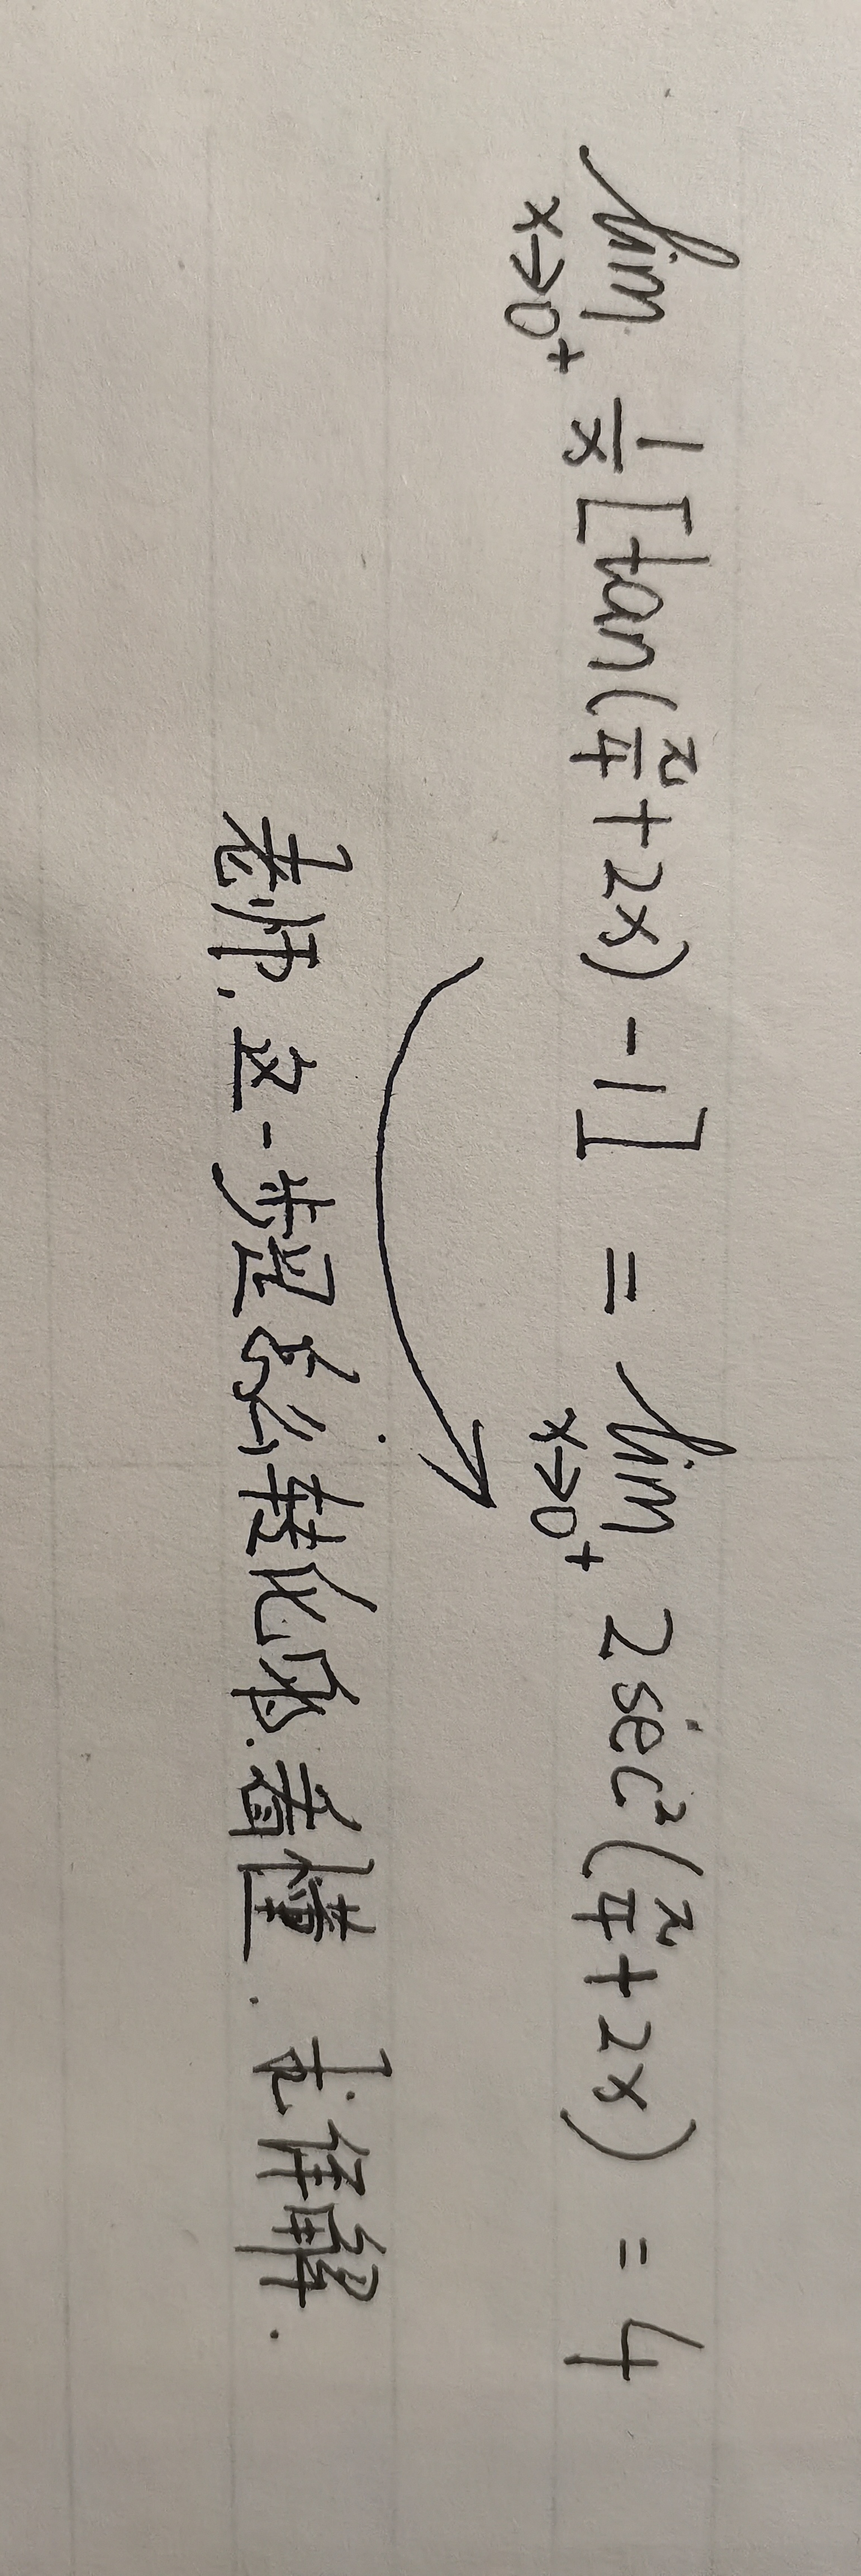 lim x→0⁺ 1/x [tan(π/4+2x)-1] = lim x→0⁺ 2sec²(π/4+2x) = 4
老师.这一步是怎么转化的.看懂.求详解.